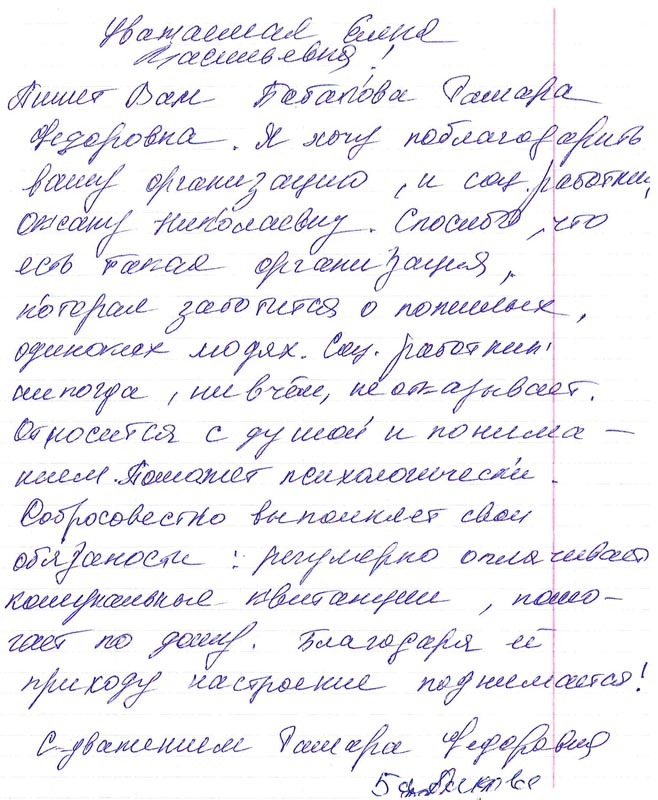 Уважаемая Елена
Васильевна!
Пишет Вам Бабакова Тамара
Федоровна. Я хочу поблагодарить
вашу организацию, и соц. работник
Оксану Николаевну. Спасибо, что
есть такая организация,
которая заботится о пожилых,
одиноких людях. Соц. работник
никогда, ни в чём, не отказывает.
Относится с душой и понима-
нием. Поможет психологически.
Добросовестно выполняет свои
обязаности: регулярно оплачивает
комунальные квитанции, помо-
гает по дому. Благодаря её
приходу настроение поднимается!
С уважением Тамара Федоровна